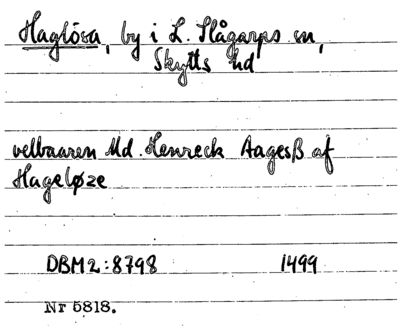 Haglösa, by i L. Slågarps sn,
Skytts hd
velbaaren Md. Henreck Aagesß af
Hageløze
DBM2:8798 1499
Nr 5818.